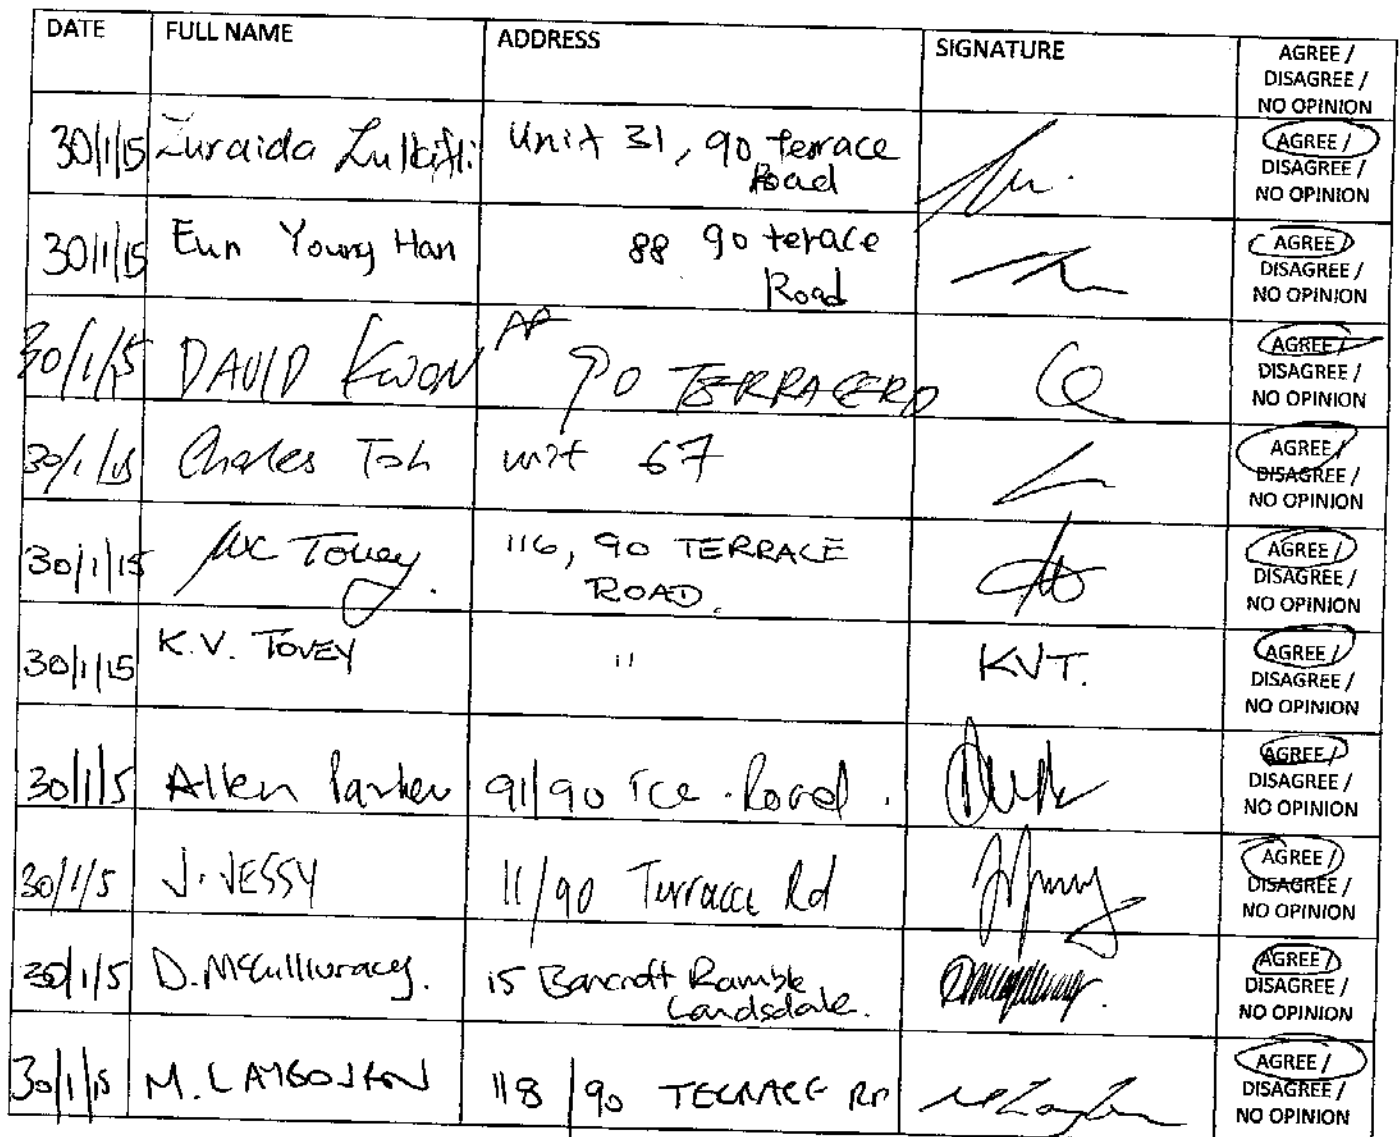 DATE FULL NAME ADDRESS SIGNATURE AGREE /
DISAGREE /
NO OPINION
30/1/15 Zuraida Zulkifli Unit 31, 90 terrace AGREE /
Road DISAGREE /
NO OPINION
30/1/15 Eun Young Han 88 90 terace AGREE /
Road DISAGREE /
NO OPINION
30/1/15 DAVID KWON 90 TERRACE RD AGREE /
DISAGREE /
NO OPINION
30/1/15 Charles Toh unit 67 AGREE /
DISAGREE /
NO OPINION
30/1/15 Tovey. 116, 90 TERRACE AGREE /
ROAD. DISAGREE /
NO OPINION
30/1/15 K.V. TOVEY " KVT. AGREE /
DISAGREE /
NO OPINION
30/1/15 Allen Parker 91/90 Tce. Road. AGREE /
DISAGREE /
NO OPINION
30/1/15 J. JESSY 11/90 Terrace Rd AGREE /
DISAGREE /
NO OPINION
30/1/15 D. 15 Bancroft Ramble AGREE /
Landsdale. DISAGREE /
NO OPINION
30/1/15 M. 118/90 TERRACE RD AGREE /
DISAGREE /
NO OPINION